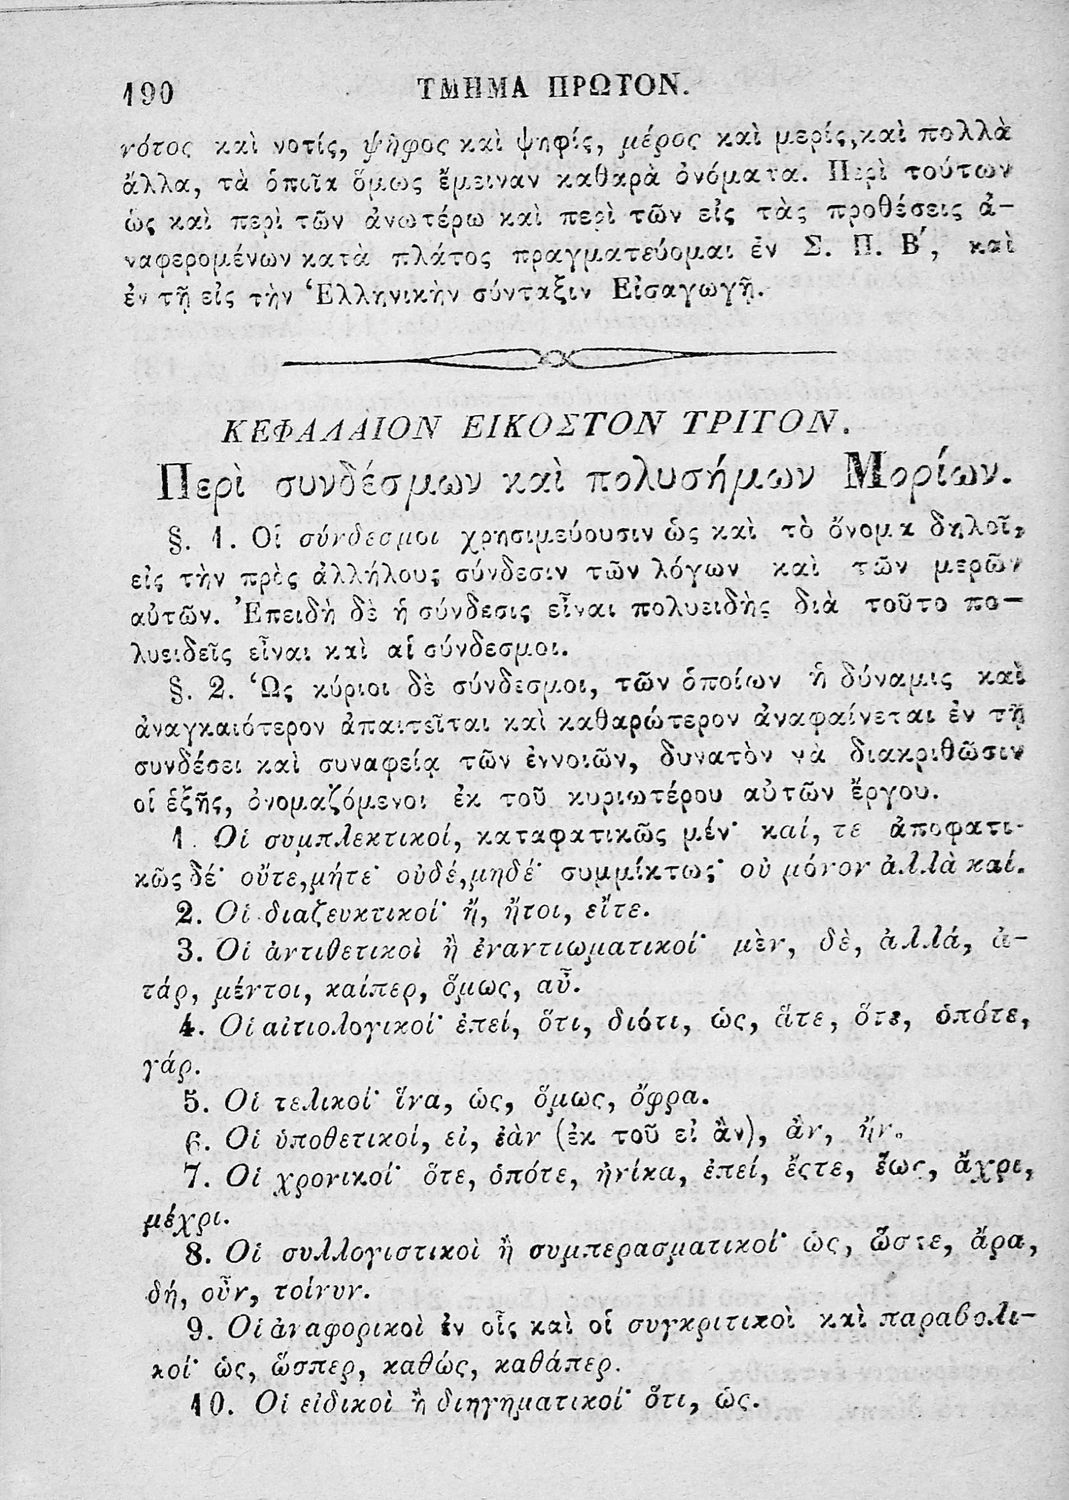 190 ΤΜΗΜΑ ΠΡΩΤΟΝ.
νότος καὶ νοτίς, ψῆφος καὶ ψηφίς, μέρος καὶ μερίς, καὶ πολλὰ
ἄλλα, τὰ ὁποῖα ὅμως ἔμειναν καθαρὰ ὀνόματα. Περὶ τούτων
ὡς καὶ περὶ τῶν ἀνωτέρω καὶ περὶ τῶν εἰς τὰς προθέσεις ἀ-
ναφερομένων κατὰ πλάτος πραγματεύομαι ἐν Σ. Π. Β΄, καὶ
ἐν τῇ εἰς τὴν Ἑλληνικὴν σύνταξιν Εἰσαγωγῇ.
ΚΕΦΑΛΑΙΟΝ ΕΙΚΟΣΤΟΝ ΤΡΙΤΟΝ.
Περὶ συνδέσμων καὶ πολυσήμων Μορίων.
§. 1. Οἱ σύνδεσμοι χρησιμεύουσιν ὡς καὶ τὸ ὄνομα δηλοῖ,
εἰς τὴν πρὸς ἀλλήλους σύνδεσιν τῶν λόγων καὶ τῶν μερῶν
αὐτῶν. Ἐπειδὴ δὲ ἡ σύνδεσις εἶναι πολυειδὴς διὰ τοῦτο πο-
λυειδεῖς εἶναι καὶ αἱ σύνδεσμοι.
§. 2. Ὡς κύριοι δὲ σύνδεσμοι, τῶν ὁποίων ἡ δύναμις καὶ
ἀναγκαιότερον ἀπαιτεῖται καὶ καθαρώτερον ἀναφαίνεται ἐν τῇ
συνδέσει καὶ συναφείᾳ τῶν ἐννοιῶν, δυνατὸν νὰ διακριθῶσιν
οἱ ἑξῆς, ὀνομαζόμενοι ἐκ τοῦ κυριωτέρου αὐτῶν ἔργου.
1. Οἱ συμπλεκτικοί, καταφατικῶς μέν· καί, τε ἀποφατι-
κῶς δέ· οὔτε, μήτε· οὐδέ, μηδέ· συμμίκτως· οὐ μόνον ἀλλὰ καί.
2. Οἱ διαζευκτικοί· ἤ, ἤτοι, εἴτε.
3. Οἱ ἀντιθετικοὶ ἢ ἐναντιωματικοί· μὲν, δὲ, ἀλλά, ἀ-
τάρ, μέντοι, καίπερ, ὅμως, αὖ.
4. Οἱ αἰτιολογικοί· ἐπεί, ὅτι, διότι, ὡς, ἅτε, ὅτε, ὁπότε,
γάρ.
5. Οἱ τελικοί· ἵνα, ὡς, ὅμως, ὄφρα.
6. Οἱ ὑποθετικοί, εἰ, ἐὰν (ἐκ τοῦ εἰ ἂν), ἂν, ἤν.
7. Οἱ χρονικοί· ὅτε, ὁπότε, ἡνίκα, ἐπεί, ἔςτε, ἕως, ἄχρι,
μέχρι.
8. Οἱ συλλογιστικοὶ ἢ συμπερασματικοί· ὡς, ὥστε, ἄρα,
δή, οὖν, τοίνυν.
9. Οἱ ἀναφορικοὶ ἐν οἷς καὶ οἱ συγκριτικοὶ καὶ παραβολι-
κοί· ὡς, ὥσπερ, καθώς, καθάπερ.
10. Οἱ εἰδικοὶ ἢ διηγηματικοί· ὅτι, ὡς.